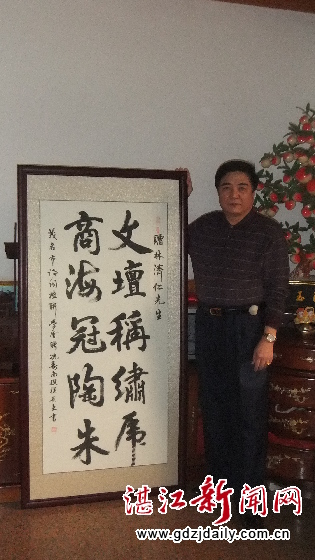 贈林濟仁先生
文壇稱繡虎
商海冠陶朱
茂名市
湛江新闻网
www.gdzjdaily.com.cn